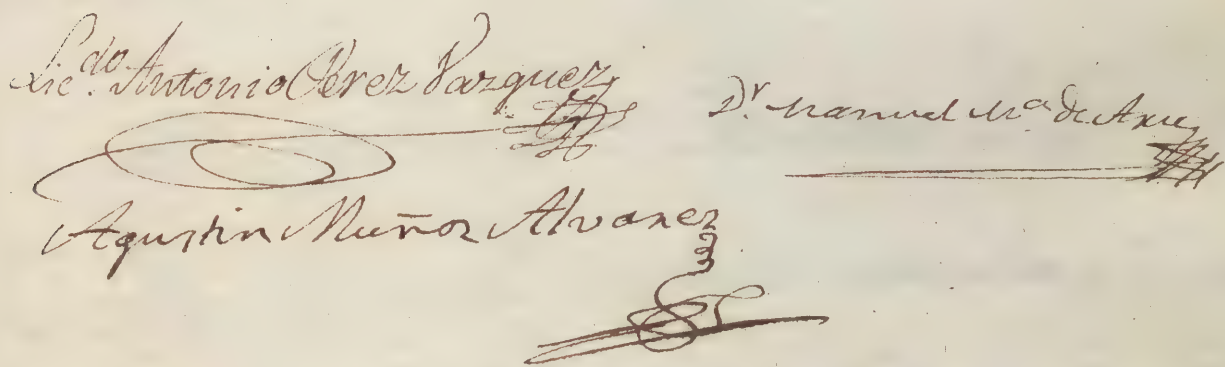 Licdo. Antonio Pérez Vazquez
Dr. Manuel Ma. de
Agustin Muñoz Alvarez